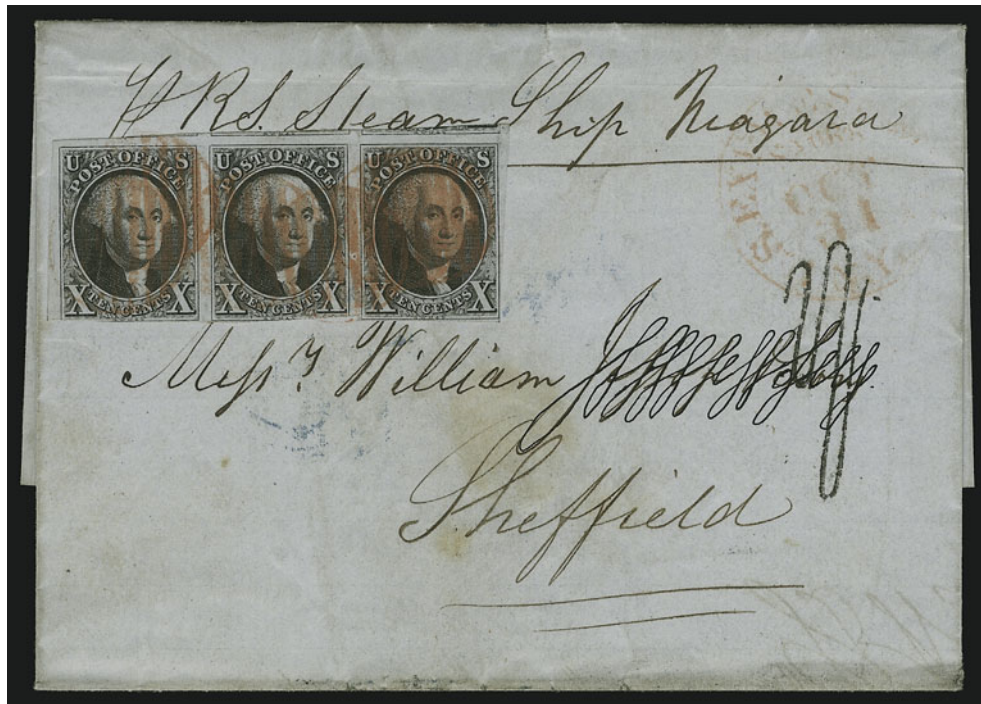 P RS. Steam Ship Niagara
U POST OFFICE S
X TEN CENTS X
U POST OFFICE S
X TEN CENTS X
U POST OFFICE S
X TEN CENTS X
Messrs William
Sheffield